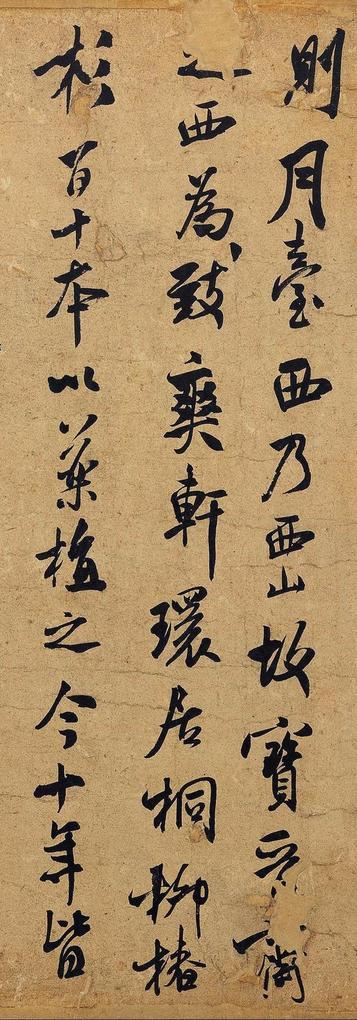 則月臺西乃西山故寶晉齋
之西為致爽軒環居桐柳椿
杉百十本以藥植之今十年皆